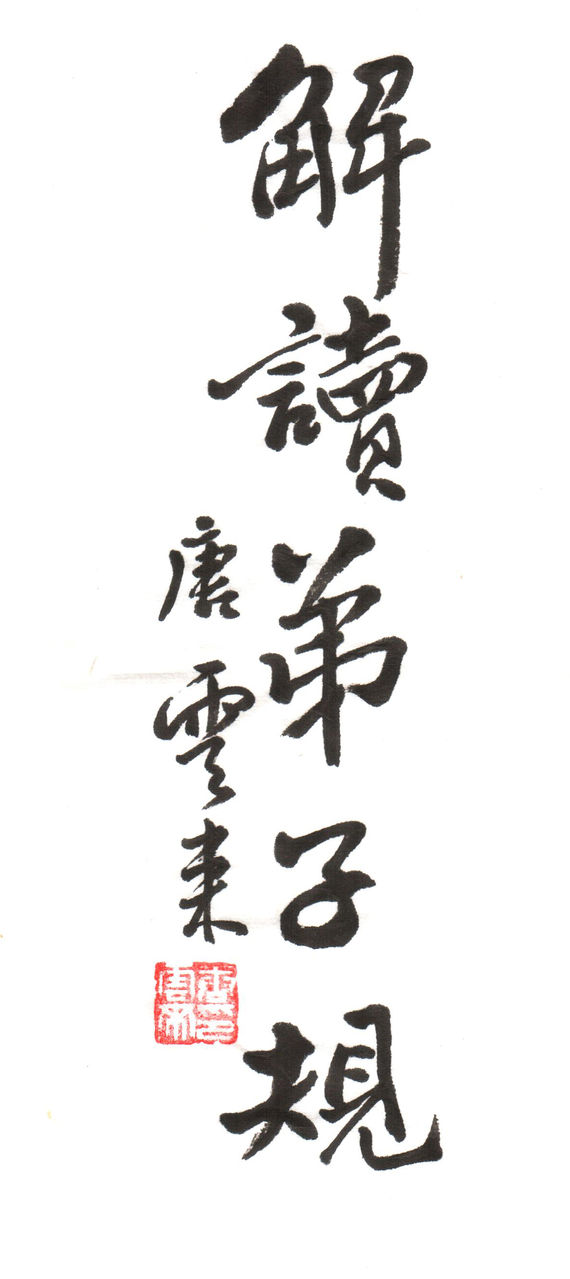 解讀弟子規
唐雲来